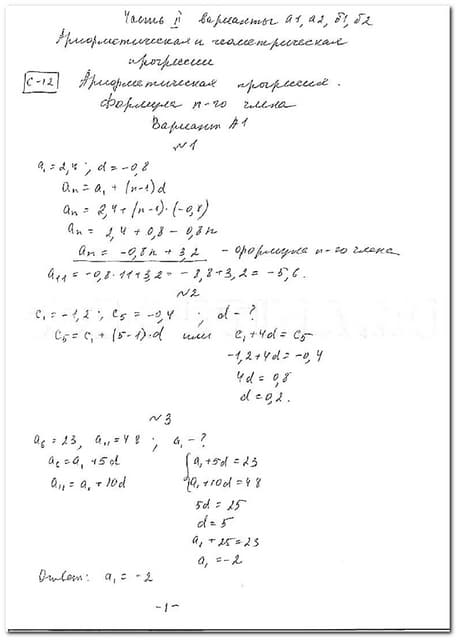 Часть II варианты А1, А2, Б1, Б2
Арифметическая и геометрическая
прогрессии
С-12 Арифметическая прогрессия.
Формула n-го члена
Вариант А1
№1
a₁ = 2,4; d = -0,8
aₙ = a₁ + (n-1)d
aₙ = 2,4 + (n-1)·(-0,8)
aₙ = 2,4 + 0,8 - 0,8n
aₙ = -0,8n + 3,2 - формула n-го члена
a₁₁ = -0,8·11 + 3,2 = -8,8 + 3,2 = -5,6.
№2
c₁ = -1,2; c₅ = -0,4; d - ?
c₅ = c₁ + (5-1)·d или c₁ + 4d = c₅
-1,2 + 4d = -0,4
4d = 0,8
d = 0,2.
№3
a₆ = 23, a₁₁ = 48; a₁ - ?
a₆ = a₁ + 5d { a₁ + 5d = 23
a₁₁ = a₁ + 10d a₁ + 10d = 48
5d = 25
d = 5
a₁ + 25 = 23
a₁ = -2
Ответ: a₁ = -2
-1-